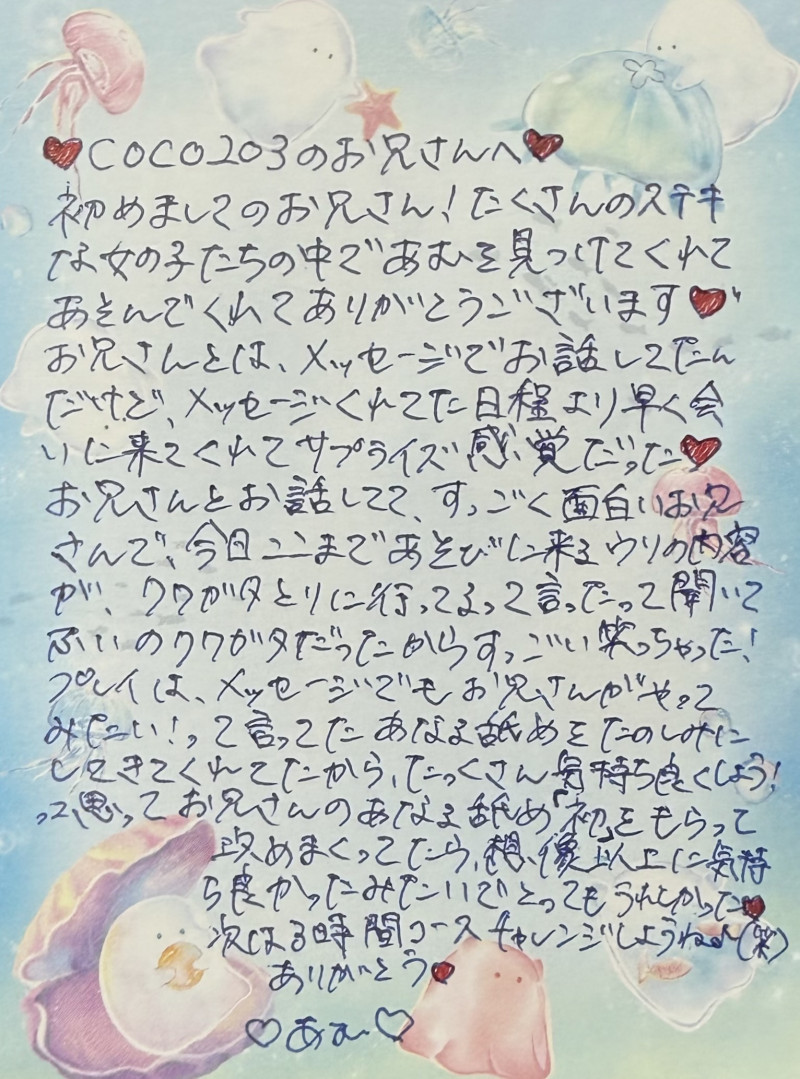 ♥COCO203のお兄さんへ♥
初めましてのお兄さん!たくさんのステキ
な女の子たちの中であむを見つけてくれて
あそんでくれてありがとうございます♥"
お兄さんとは、メッセージでお話してたん
だけど、メッセージくれてた日程より早く会
いに来てくれてサプライズ感覚だった♥
お兄さんとお話してて、すっごく面白いお兄
さんで、今日ここまであそびに来るウソの内容
が、クワガタとりに行ってるって言ったって聞いて
まさかのクワガタだったからすっごい笑っちゃった!
プレイは、メッセージでもお兄さんがやって
みたい!って言ってたあなる舐めをたのしみに
してきてくれてたから、たっくさん気持ち良くしよう!
って思ってお兄さんのあなる舐め「初」をもらって
攻めまくってたら、想像以上に気持
ち良かったみたいでとってもうれしかった♥
次は3時間コースチャレンジしようね♪(笑)
ありがとう♥
♡あむ♡